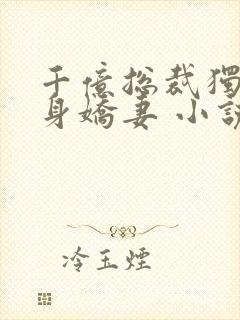 千億総裁獨
身嬌妻 小說
冷玉煙